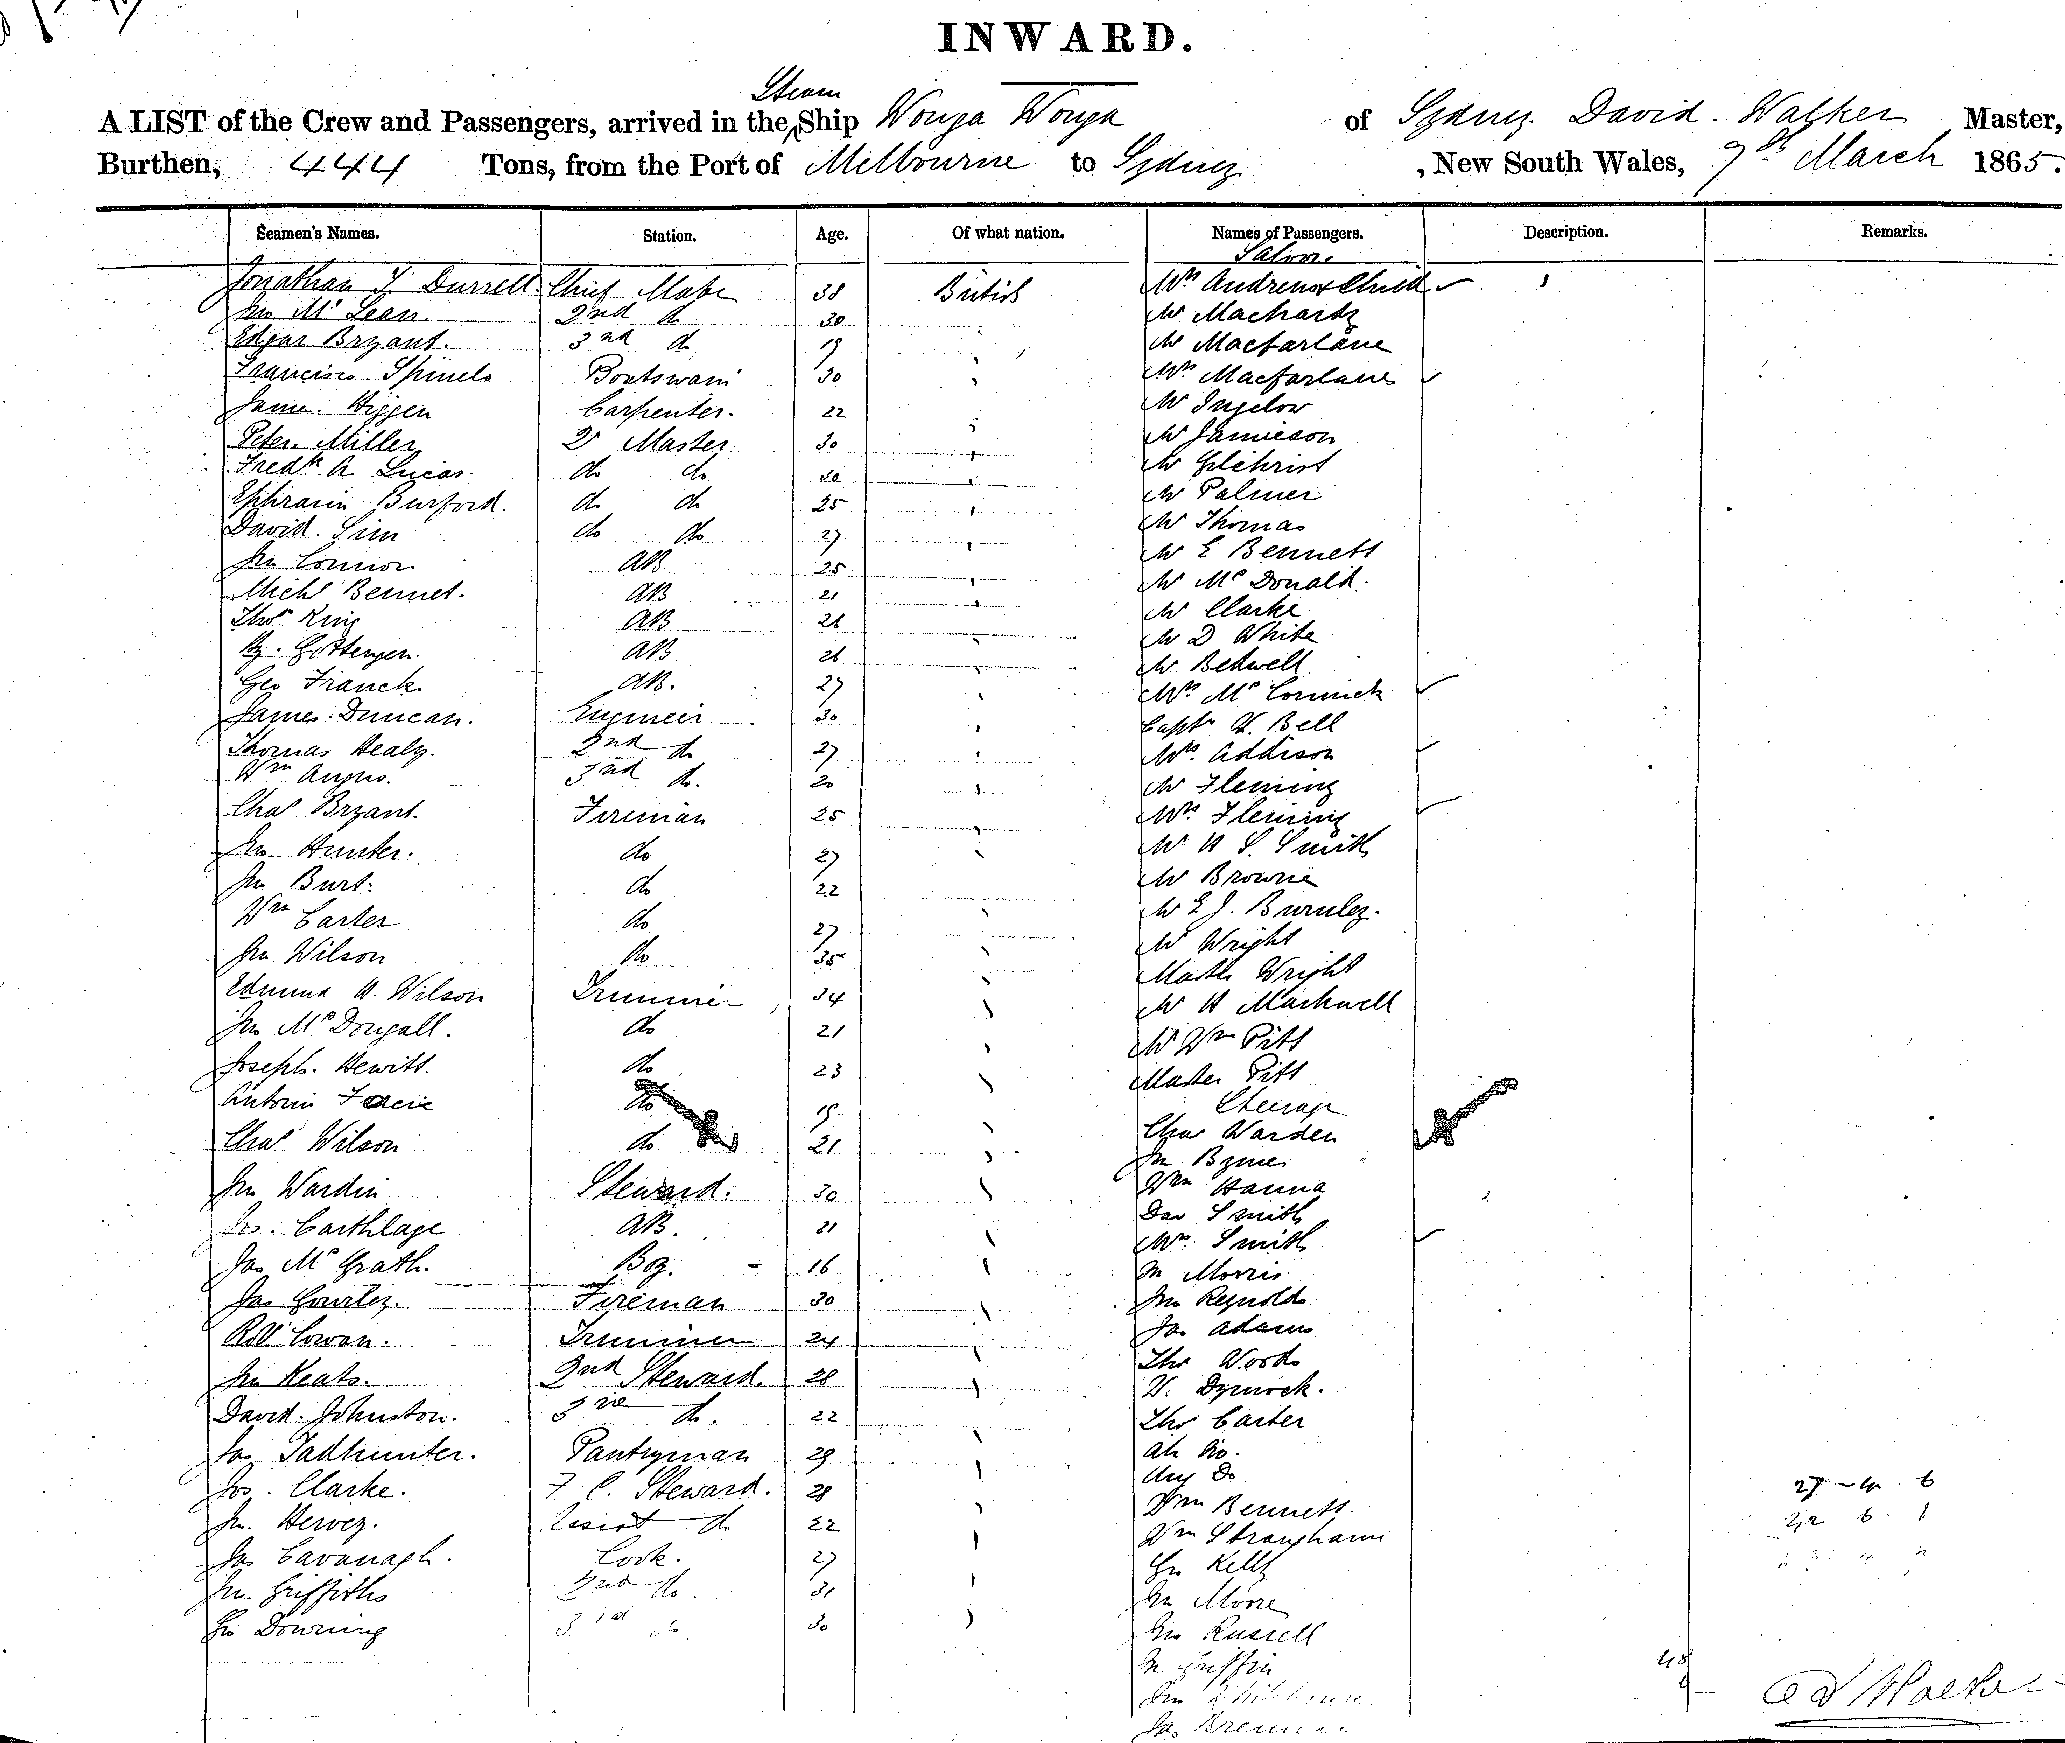 INWARD.
A LIST of the Crew and Passengers, arrived in the Steam Ship Wonga Wonga of Sydney David Walker Master,
Burthen, 444 Tons, from the Port of Melbourne to Sydney, New South Wales, 9th March 1865.
Seamen's Names. Station. Age. Of what nation. Names of Passengers. Description. Remarks.
Saloon
Chief Mate 38 British Child
Jno McLean 2nd do 30 Mr Macharty
Edgar Bryant 3rd do 19 Mr Macfarlane
Francisco Boatswain 30 Mrs Macfarlane
Carpenter. 22 Mr Ingelow
Peter Miller Qr Master 30 Mr Jamieson
Fredk A Lucas do do 30 Mr Gilchrist
Ephraim Burford. do do 25 Mr Palmer
David Sim do do 27 Mr Thomas
Jno Connor AB 25 Mr E Bennett
Michl Bennet. AB 21 Mr McDonald.
Thos King AB Mr Clarke
AB Mr D White
Geo Franck AB. 27 Mr Bedwell
James Duncan. Engineer 30 Mrs McCormick
Thomas Healy. 2nd do 27 Capt Bell
Wm Angus. 3rd do. 20 Mrs Addison
Chas Bryant. Fireman 25 Mr Fleming
Jno Hunter. do 27 Mrs Fleming
Jno Burt. do 22 Mr H S. Smith
Wm Carter do 27 Mr Browne
Jno Wilson do 35 Mr E J. Burnley.
Edmund A. Wilson Trimmer 34 Mr Wright
Jno McDougall. do 21 Master Wright
Joseph Hewitt. do 23 Mr H Markwell
do 19 Mr Wm Pitt
Chas Wilson do 21 Master Pitt
Jno Wardin Steward. 30 Steerage
Carthlage AB. 21 Chas Warden
Jas McGrath. Boy. 16 Jno Byrne
Jas Gourley. Fireman 30 Wm Hanna
Robt Cowan. Trimmer 24 Smith
Jno Keats. 2nd Steward. 28 Mrs Smith
David Johnston. 3rd do. 22 Morris
Jas Tadhunter. Pantryman 29 Jno Reynolds
Jos. Clarke. F C. Steward. 28 Jas Adams
Jno. Hervey. Assist do 22 Thos Woods
Jas Cavanagh. Cook. 27 W. Dymock.
Jno. Griffiths 2nd do. 31 Thos Carter
Downing 3rd do. 30
Wm Bennett
Wm Stranghann
Kelly
Jno Moore
Russell
Griffin
Jas. Brennan